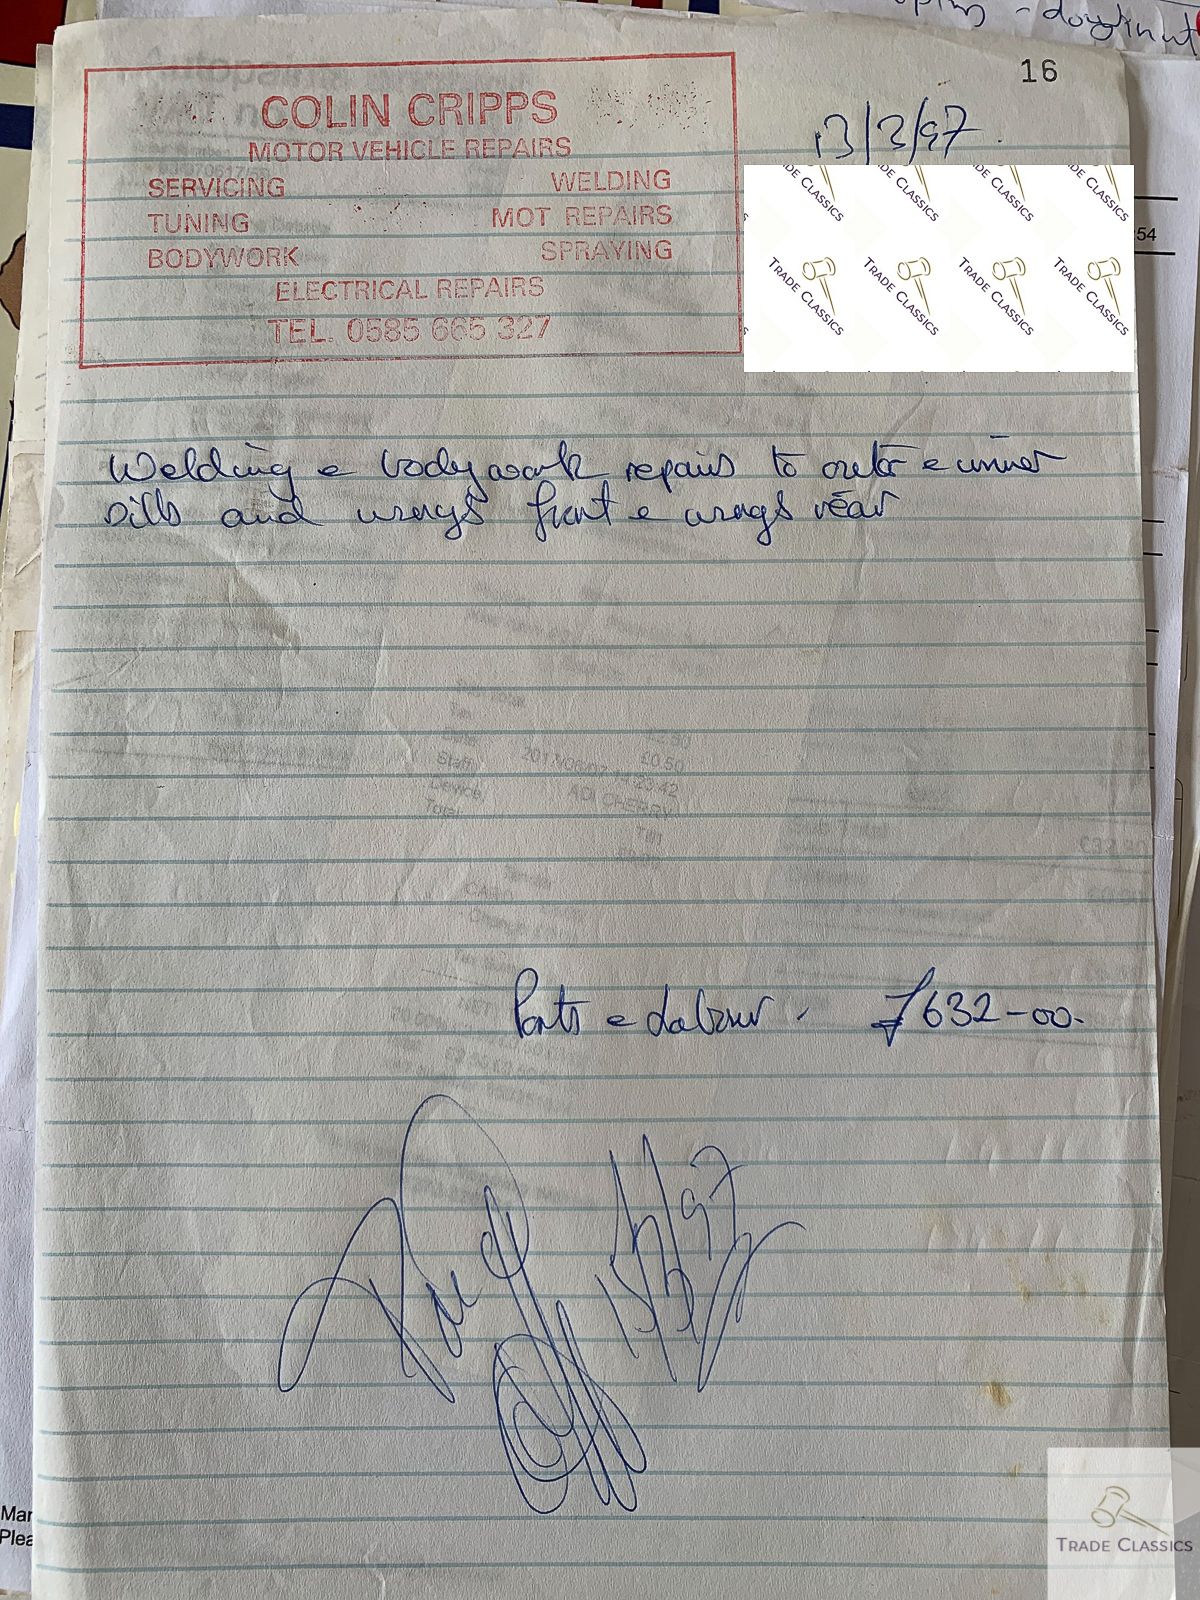 16
COLIN CRIPPS
MOTOR VEHICLE REPAIRS
SERVICING WELDING
TUNING MOT REPAIRS
BODYWORK SPRAYING
ELECTRICAL REPAIRS
TEL. 0585 665 327
13/3/97
TRADE CLASSICS TRADE CLASSICS TRADE CLASSICS TRADE CLASSICS
54
Welding & bodywork repairs to outer & inner
sills and wings front & wings rear
Parts & Labour. £632-00.
Paid
15/3/97
Mar
Plea
TRADE CLASSICS